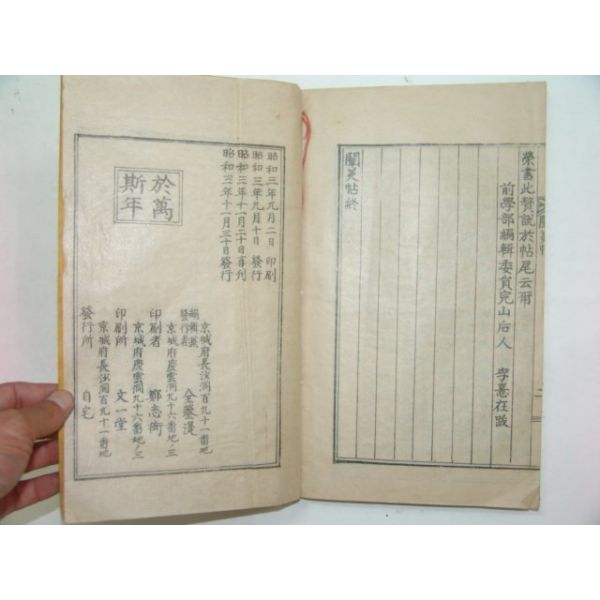 榮書此贅說於帖尾云爾
前學部編輯委員完山后人 李憙在跋
闡美帖終
昭和三年九月二日 印刷
昭和三年九月十日 發行
昭和三年十一月二十日再刊
昭和三年十一月三十日發行
於萬
斯年
京城府長沙洞百九十一番地
編輯兼
發行者 金
京城府慶雲洞九十六番地ノ三
印刷者 鄭志衙
京城府慶雲洞九十六番地ノ三
印刷所 文一堂
京城府長沙洞百九十一番地
發行所 自宅